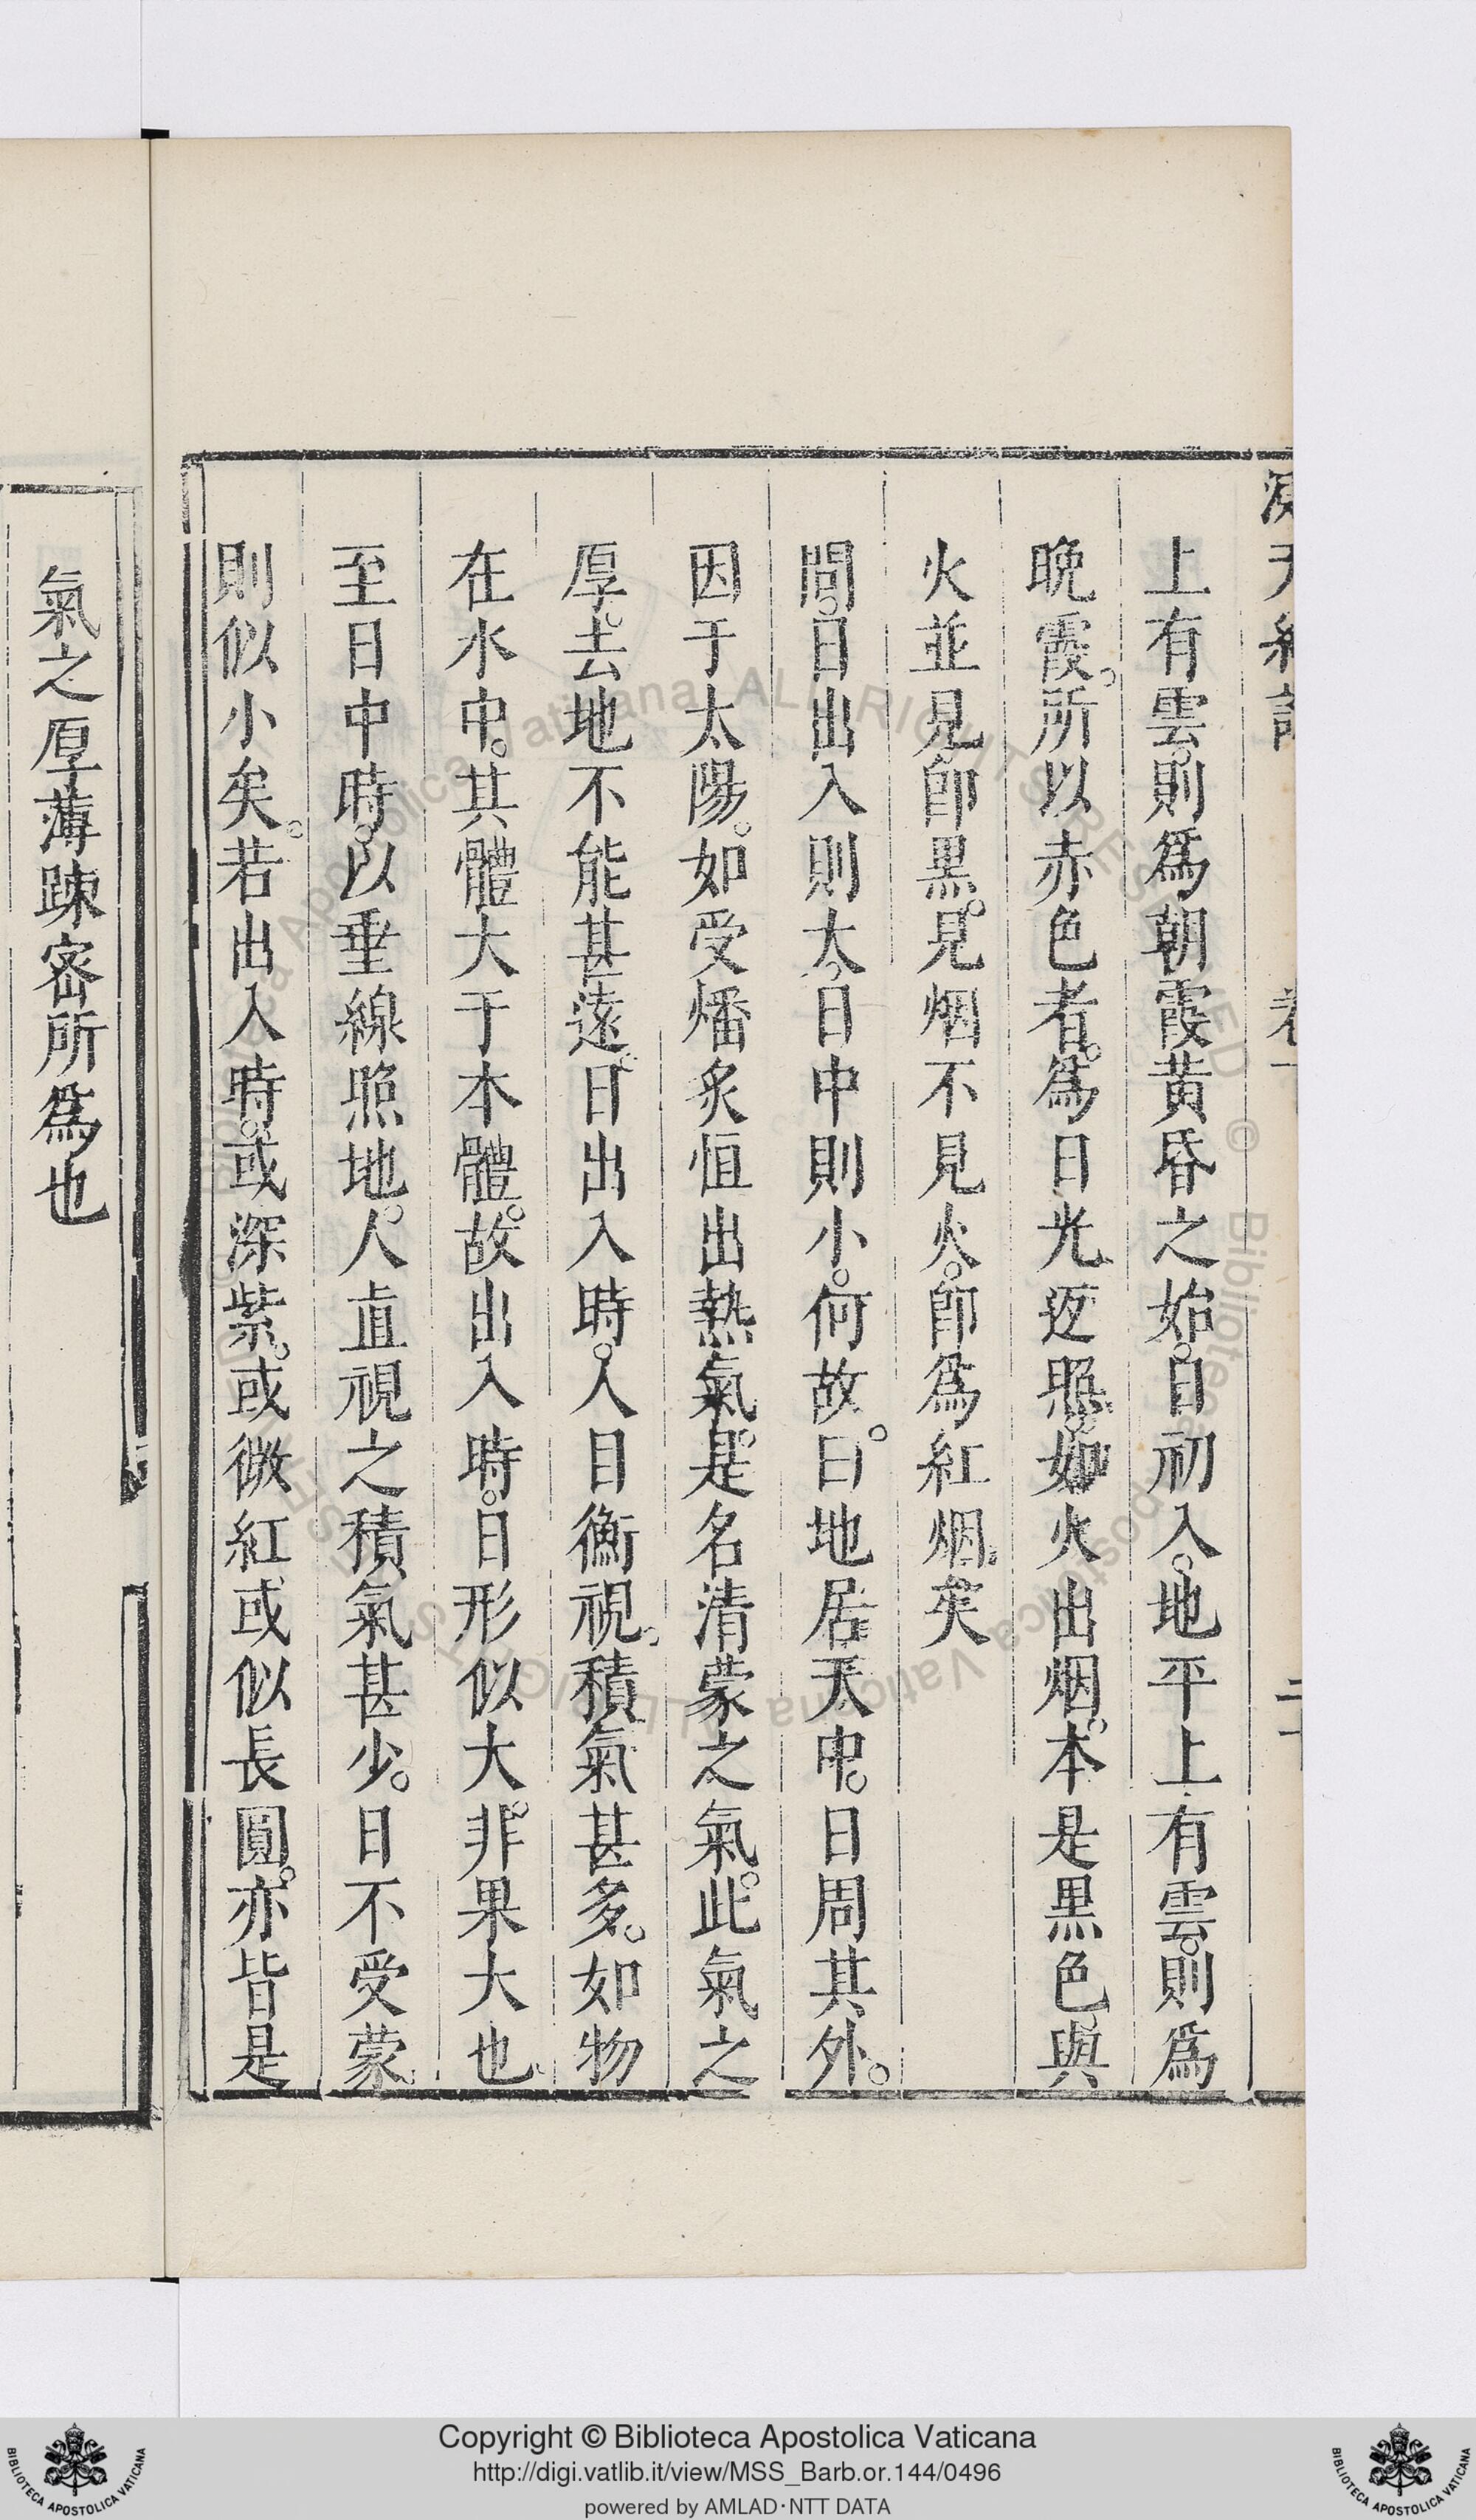 上有雲。則爲朝霞黄昏之始。日初入。地平上有雲。則爲
晩霞。所以赤色者。爲日光返照。如火出烟。本是黒色與
火並見卽黒。見烟不見火。卽爲紅烟矣
問。日出入則大。日中則小。何故。曰地居天中。日周其外。
因于太陽。如受燔炙恒出熱氣。是名清蒙之氣。此氣之
厚。去地不能甚遠。日出入時。人目衡視。積氣甚多。如物
在水中。其體大于本體。故出入時。日形似大。非果大也。
至日中時。以垂線照地。人直視之積氣甚少。日不受蒙。
則似小矣。若出入時。或深紫。或微紅或似長圓。亦皆是
氣之厚薄踈密所爲也
Copyright © Biblioteca Apostolica Vaticana
http://digi.vatlib.it/view/MSS_Barb.or.144/0496
powered by AMLAD·NTT DATA
BIBLIOTECA APOSTOLICA VATICANA
BIBLIOTECA APOSTOLICA VATICANA